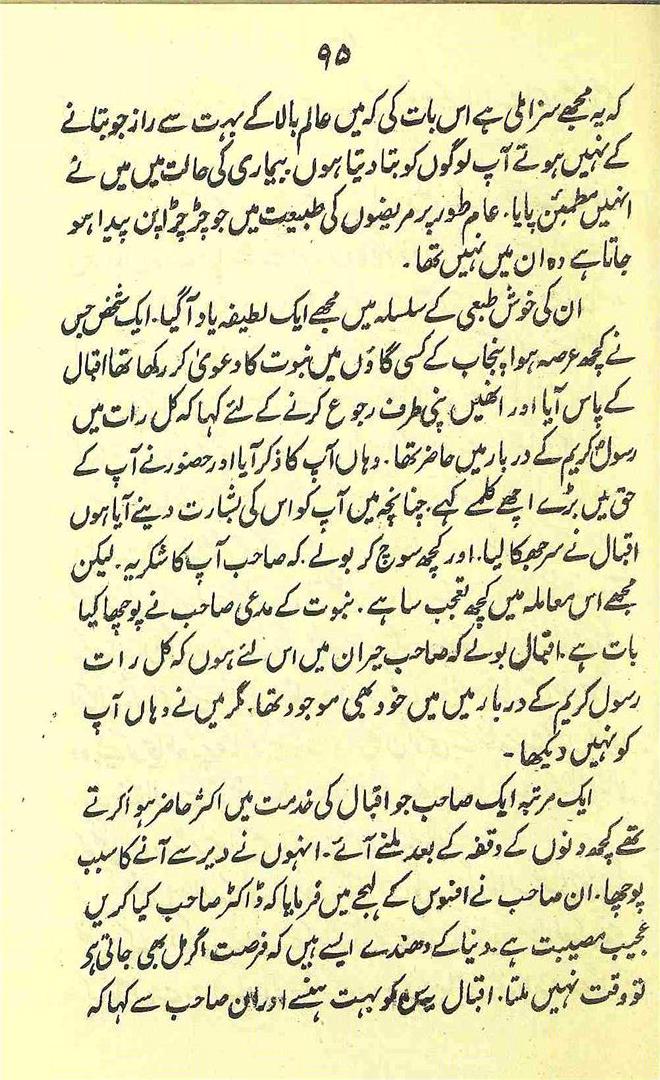 ۹۵
کہ یہ مجھے سزا ملی ہے اس بات کی کہ میں عالم بالا کے بہت سے راز جو بتانے
کے نہیں ہوتے آپ لوگوں کو بتا دیتا ہوں. بیماری کی حالت میں میں نے
انہیں مطمئن پایا. عام طور پر مریضوں کی طبیعت میں جو چڑچڑا پن پیدا ہو
جاتا ہے وہ ان میں نہیں تھا.
ان کی خوش طبعی کے سلسلہ میں مجھے ایک لطیفہ یاد آ گیا. ایک شخص جس
نے کچھ عرصہ ہوا پنجاب کے کسی گاؤں میں نبوت کا دعویٰ کر رکھا تھا اقبال
کے پاس آیا اور انھیں اپنی طرف رجوع کرنے کے لئے کہا کہ کل رات میں
رسول کریم کے دربار میں حاضر تھا. وہاں آپ کا ذکر آیا اور حضور نے آپ کے
حق میں بڑے اچھے کلمے کہے. چنانچہ میں آپ کو اس کی بشارت دینے آیا ہوں
اقبال نے سر جھکا لیا. اور کچھ سوچ کر بولے. کہ صاحب آپ کا شکریہ. لیکن
مجھے اس معاملہ میں کچھ تعجب سا ہے. نبوت کے مدعی صاحب نے پوچھا کیا
بات ہے. اقبال بولے کہ صاحب حیران میں اس لئے ہوں کہ کل رات
رسول کریم کے دربار میں میں خود بھی موجود تھا. مگر میں نے وہاں آپ
کو نہیں دیکھا-
ایک مرتبہ ایک صاحب جو اقبال کی خدمت میں اکثر حاضر ہوا کرتے
تھے کچھ دنوں کے وقفہ کے بعد ملنے آئے. انہوں نے دیر سے آنے کا سبب
پوچھا. ان صاحب نے افسوس کے لہجے میں فرمایا کہ ڈاکٹر صاحب کیا کریں
عجیب مصیبت ہے. دنیا کے دھندے ایسے ہیں کہ فرصت اگر مل بھی جاتی ہی
تو وقت نہیں ملتا. اقبال کو بہت ہنسے اور ان صاحب سے کہا کہ